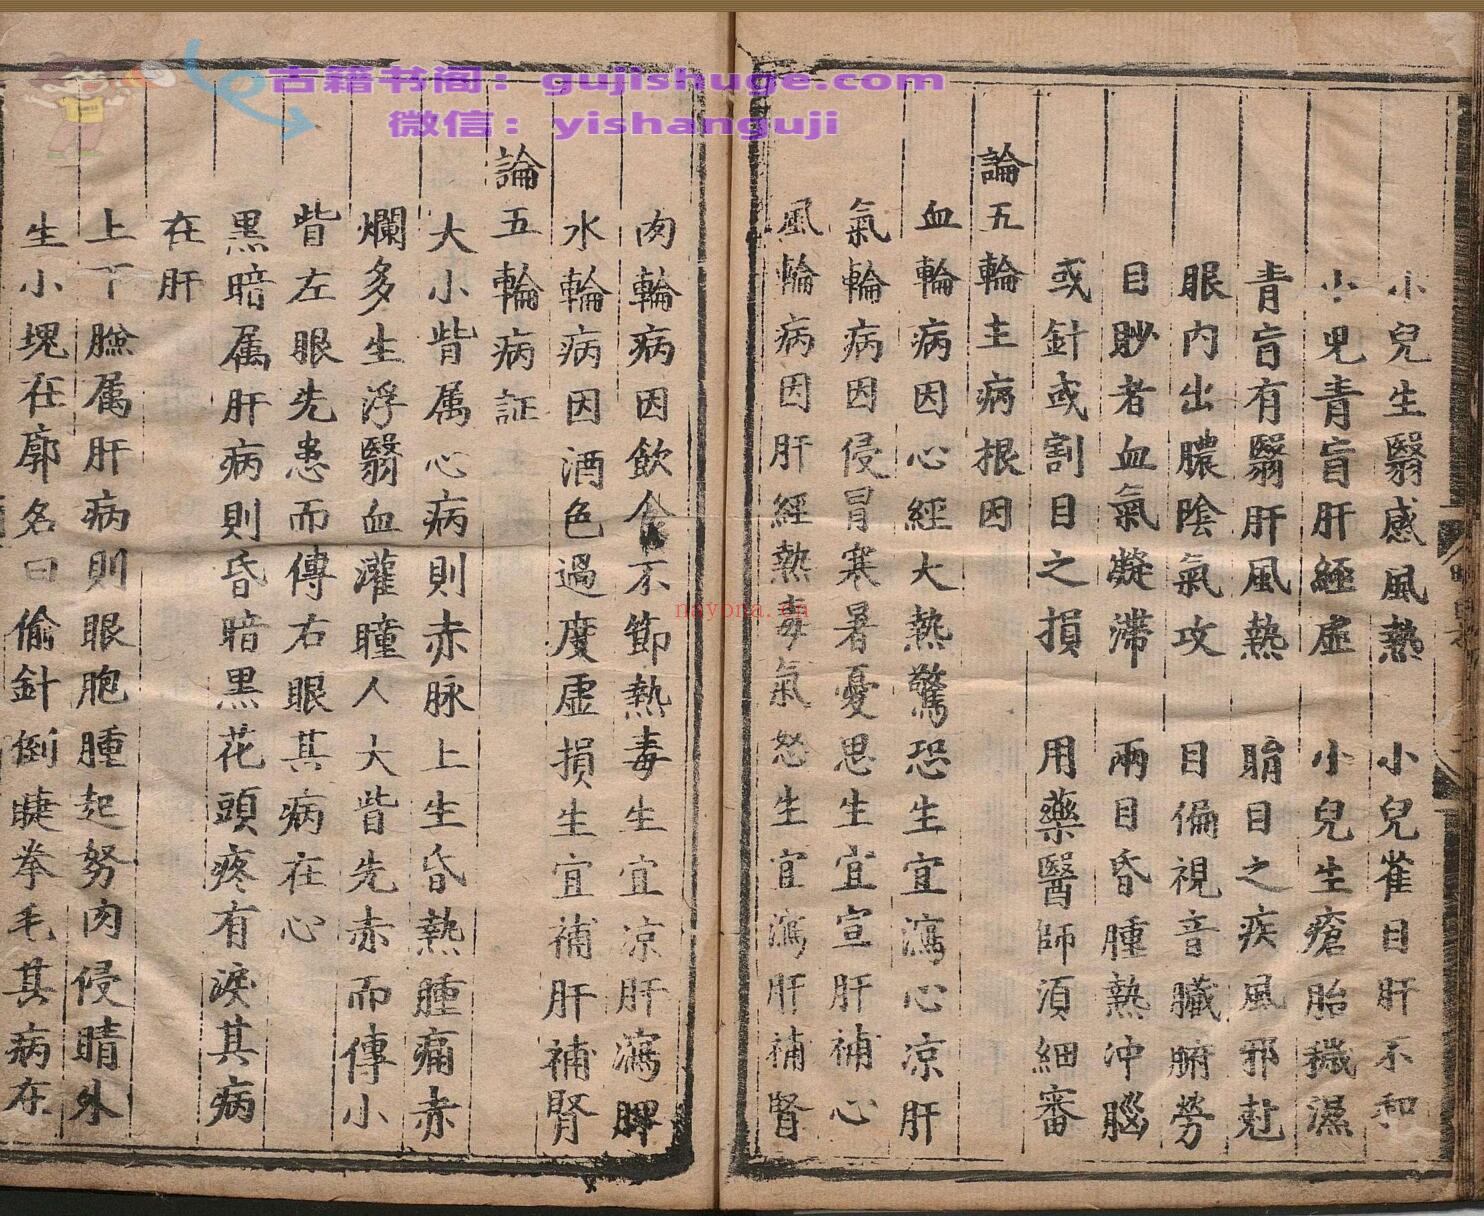 古籍书阁：gujishuge.com
微信：yishanguji
nayona.cn
小兒生翳感風熱　小兒雀目肝不和
小兒青盲肝經虛　小兒生瘡胎穢濕
青盲有翳肝風熱　睊目之疾風邪尅
眼内出膿陰氣攻　目偏視音臟腑勞
目眇者血氣凝滯　兩目昏腫熱冲腦
或針或割目之損　用藥醫師須細審
論五輪主病根因
血輪病因心經大熱驚恐生宜瀉心凉肝
氣輪病因侵冒寒暑憂思生宜宣肝補心
風輪病因肝經熱毒氣怒生宜瀉肝補腎
肉輪病因飲食不節熱毒生宜凉肝瀉脾
水輪病因酒色過度虛損生宜補肝補腎
論五輪病証
大小眥属心病則赤脉上生昏熱腫痛赤
爛多生浮翳血灌瞳人大眥先赤而傳小
眥左眼先患而傳右眼其病在心
黑暗属肝病則昏暗黑花頭疼有淚其病
在肝
上下臉属肝病則眼胞腫起努肉侵睛外
生小塊在廓名曰偷針倒睫拳毛其病在